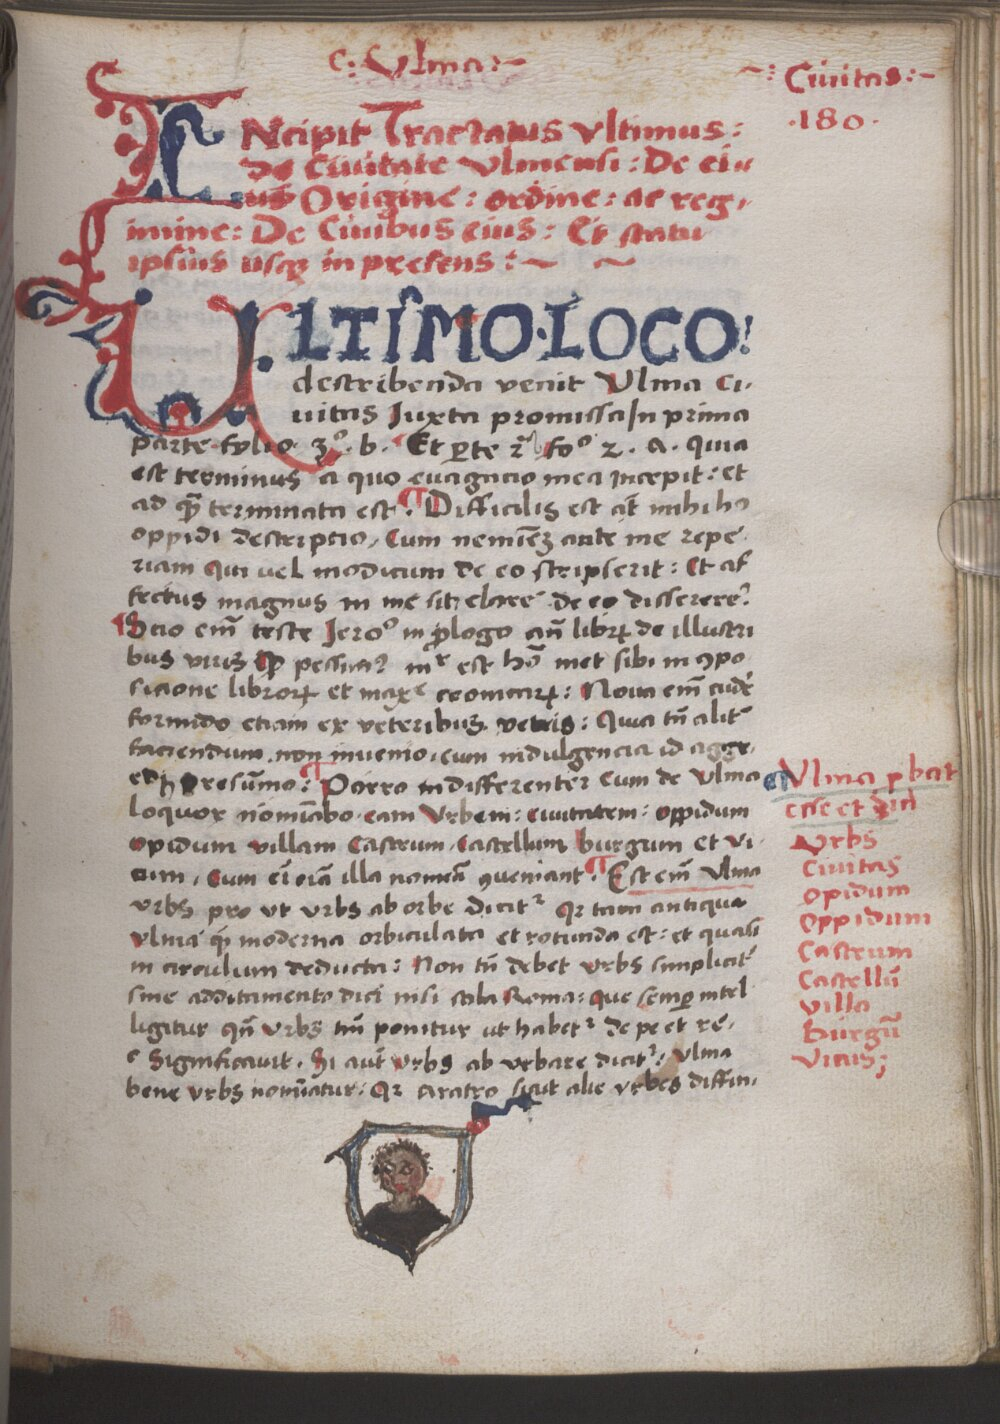 C: Vlma:~
~: Ciuitas:~
.180.
INcipit Tractatus vltimus:
de Ciuitate vlmensi: De ei⸗
us Origine: ordine: ac reg⸗
imine: De Ciuibus eius: Et statu
ipsius usqꝫ in presens:~ ~
VLTIMO.LOCO!
describenda venit Vlma Ci⸗
uitas Juxta promissa In prima
parte folio 3º. b. Et ꝑte fº 2. A. quia
est terminus a quo euagacio mea incepit: et
ad quā terminata est. Difficilis est aūt mihi hᵒ
oppidi descriptio, Cum neminē ante me repe⸗
riam qui vel modicum de eo scripserit: Et af
fectus magnus in me sit de eo disserere.
Scio eīm teste Jeroᵒ in ꝓlogo librꝝ de illustri
bus viris est hō met sibi in ꝯpo
sicione librorꝝ et Noua eīm
formido etiam ex veteribus Quia tn̄ alit̄
faciendum non inuenio, cum indulgencia id agge⸗
presūmo: Porro indifferenter cum de Vlma
loquor nominabo eam Vrbem: ciuitatem: oppidum
opidum villam Castrum, Castellum burgum et vi⸗
cum, Cum ei oīa illa nomina ꝯueniant. Est eīm Vlma
vrbs pro vt vrbs ab orbe dicitᵘʳ Qꝛ tam antiqua
vlma qꝫ moderna orbiculata et rotunda est: et quasi
in circulum deducta: Non tn̄ debet vrbs simplicit̄
sine additamento dici nisi sola Roma: que semꝑ intel
ligitur qn̄ vrbs tm̄ ponitur ut habetᵘʳ de pe et re⸗
c Significauit. Si aūt vrbs ab vrbare dicitᵘʳ, Vlma
bene vrbs nominatur: Qꝛ aratro sicut alie vrbes diffin⸗
Vlma ꝓbat
esse et dici
Vrbs
Ciuitas
opidum
oppidum
Castrum
Castellū
villa
Burgū
Vicus;